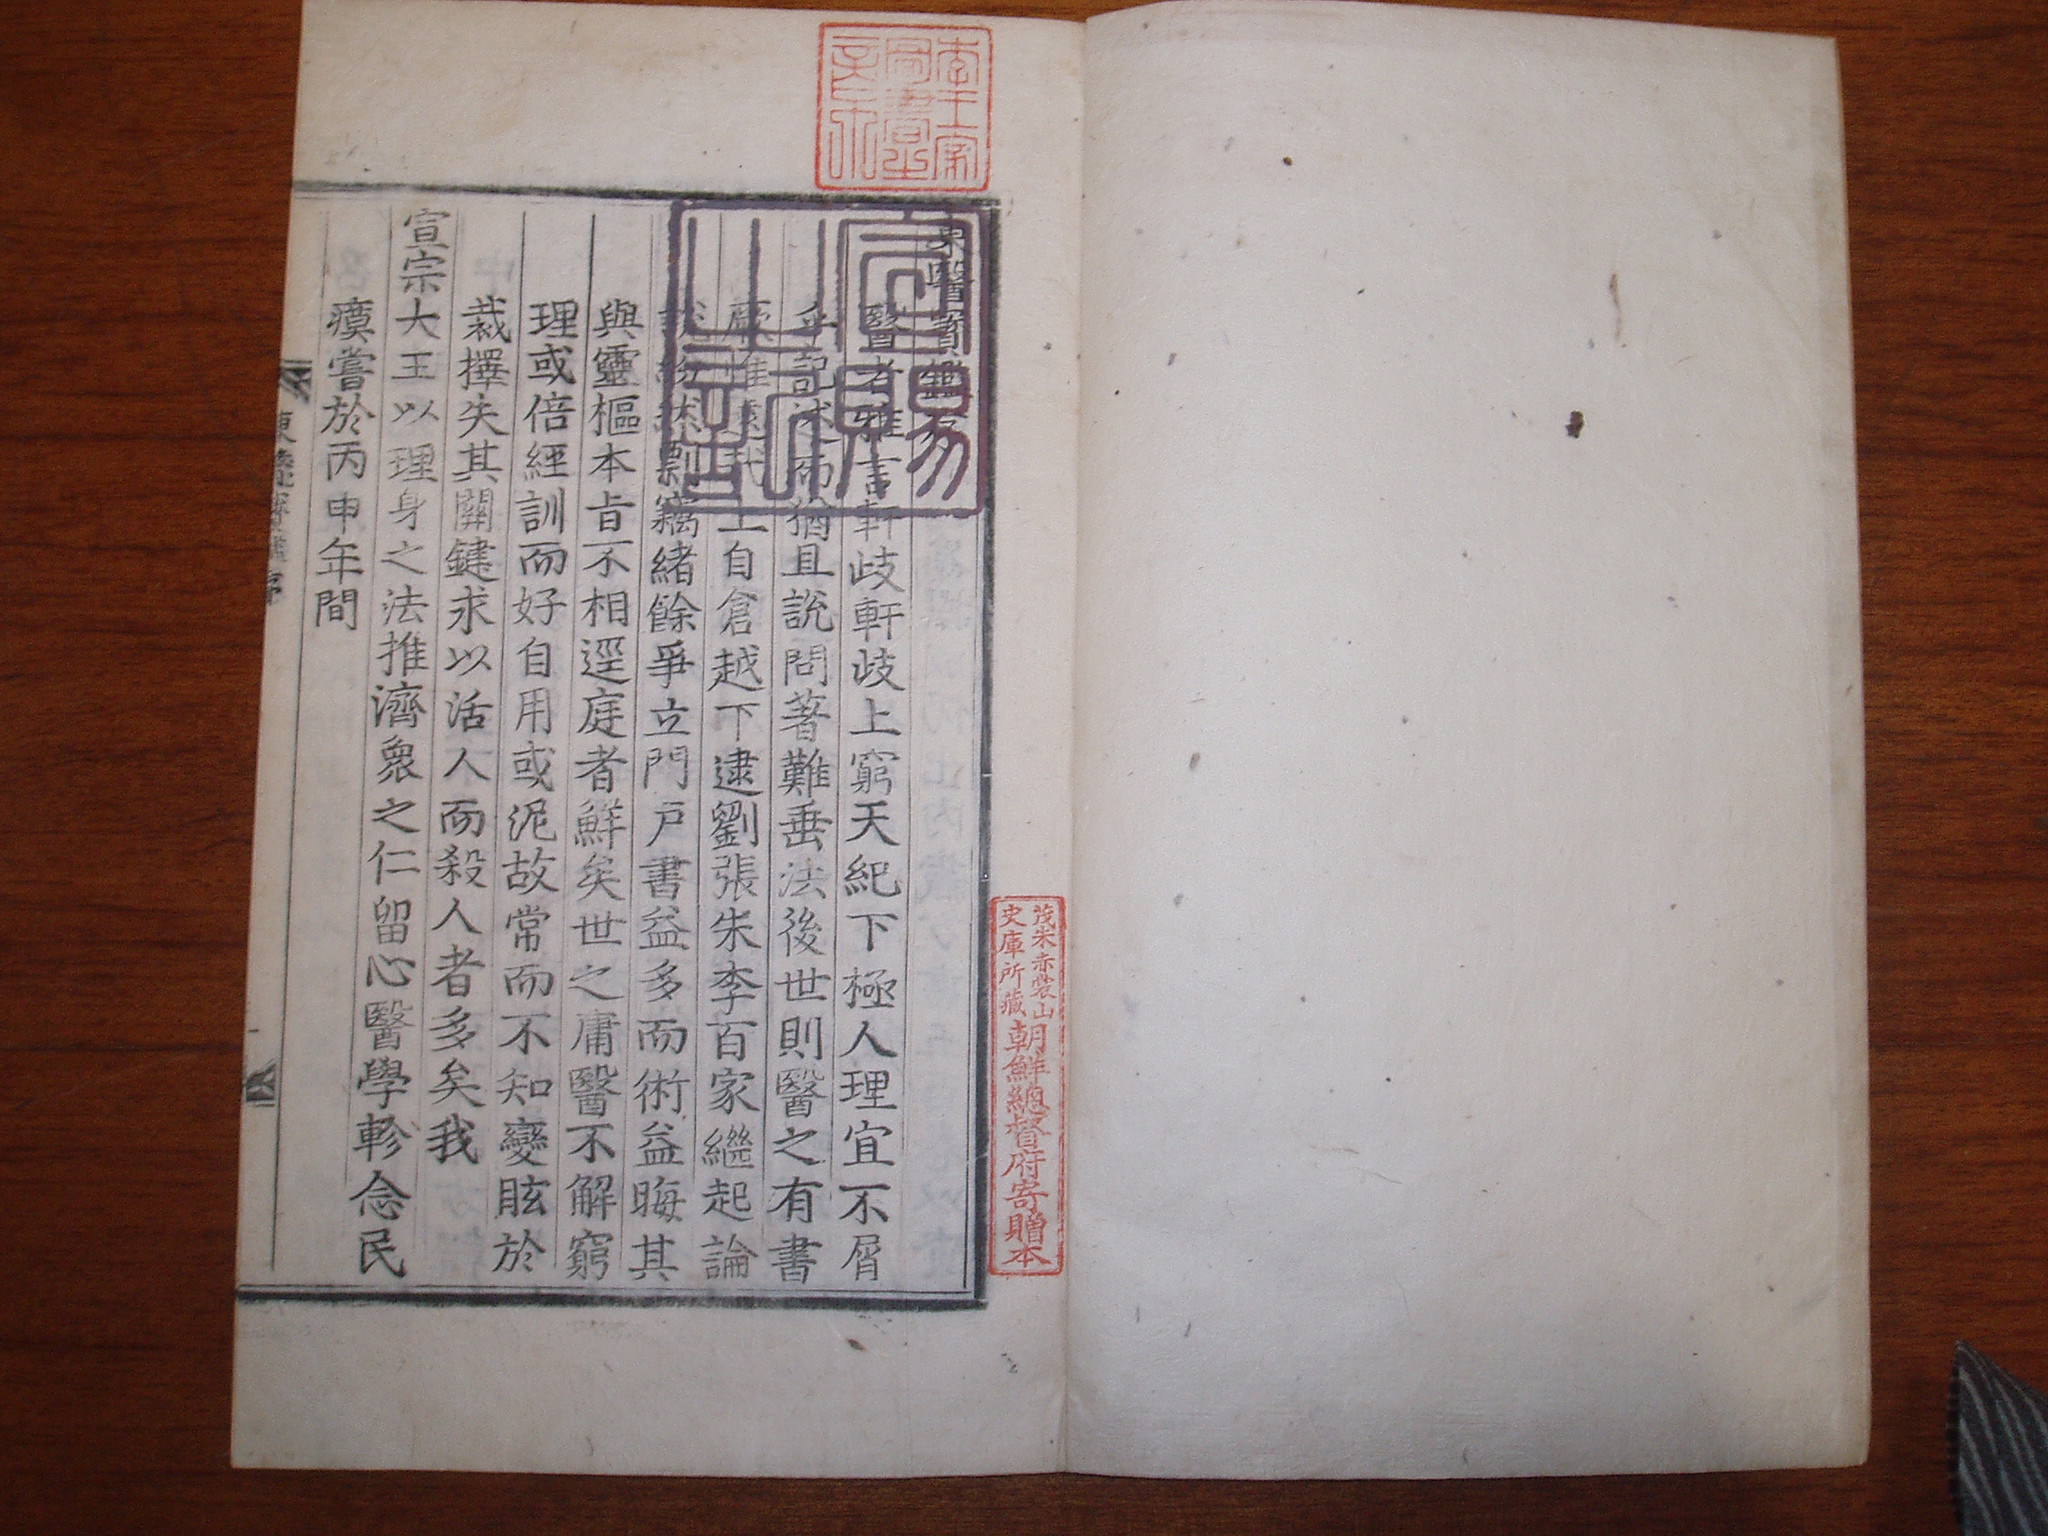 東醫寶鑑序
醫者雅言軒岐軒岐上窮天紀下極人理宜不屑
乎記述而猶且說問著難垂法後世則醫之有書
厥惟遠哉上自倉越下逮劉張朱李百家繼起論
說紛然剽竊緖餘爭立門戶書益多而術益晦其
與靈樞本旨不相逕庭者鮮矣世之庸醫不解窮
理或倍經訓而好自用或泥故常而不知變眩於
裁擇失其關鍵求以活人而殺人者多矣我
宣宗大王以理身之法推濟衆之仁留心醫學軫念民
瘼嘗於丙申年間
東醫寶鑑序
李王家圖書之章
宣賜之記
茂朱赤裳山
史庫所藏
朝鮮總督府寄贈本